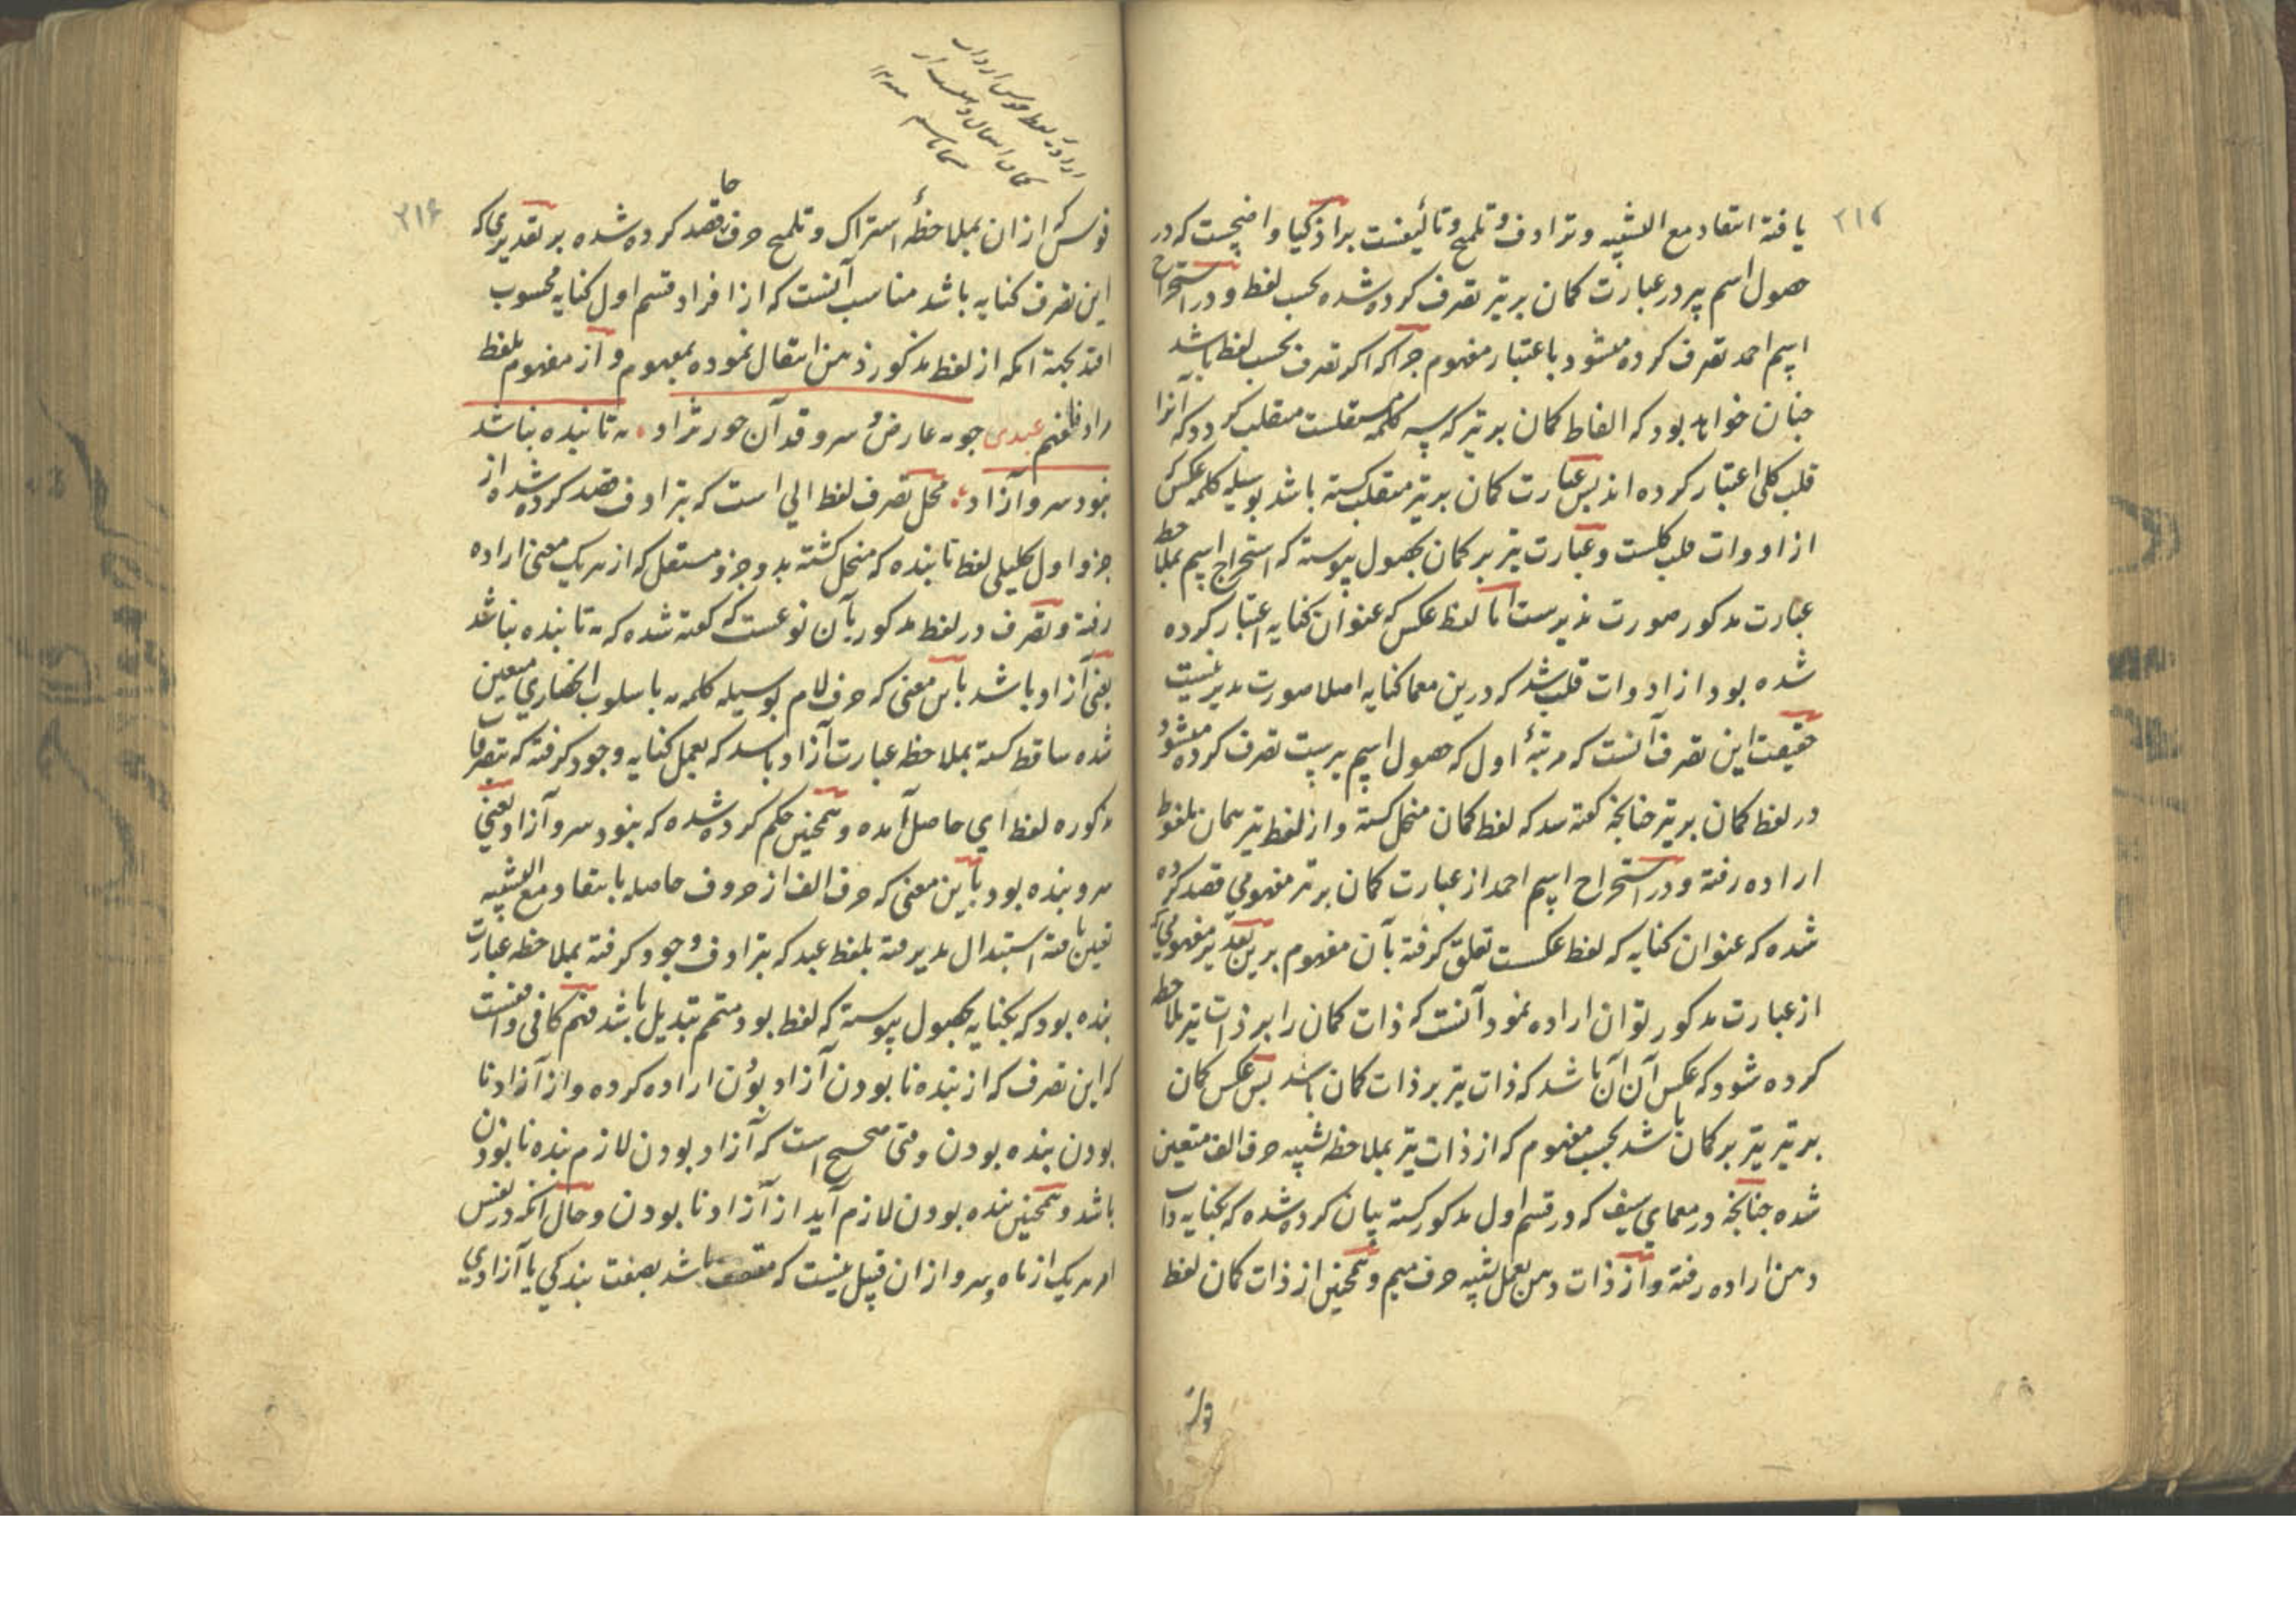 ۲۱۵
یافته انتقاد مع التشبیه و ترادف و تلمیح و تألیفست بر اذکیا واضحست که در
حصول اسم پیر در عبارت کمان بر تیر تصرف کرده شده بحسب لفظ و در استخراج
اسم احمد تصرف کرده میشود باعتبار مفهوم چرا که اکر تصرف بحسب لفظ باشد
چنان خواهد بود که الفاظ کمان بر تیر که سه کلمه مستقلست منقلب کردد که آنرا
قلب کلی اعتبار کرده اند پس عبارت کمان بر تیر منقلب کشته باشد بوسیله کلمه عکس که
از ادوات قلب کلست و عبارت تیر بر کمان بحصول پیوسته که استخراج اسم بملاحظه
عبارت مذکور صورت پذیرست اما لفظ عکس که عنوان کنایه اعتبار کرده
شده بود از ادوات قلب شد که درین معما کنایه اصلا صورت پذیر نیست
حقیقت این تصرف آنست که مرتبهٔ اول که حصول اسم پیرست تصرف کرده میشود
در لفظ کمان بر تیر چنانچه کفته شد که لفظ کمان منحل کشته و از لفظ تیر همان ملفوظ
اراده رفته و در استخراج اسم احمد از عبارت کمان بر تیر مفهومی قصد کرده
شده که عنوان کنایه که لفظ عکست تعلق کرفته بآن مفهوم برین تقدیر مفهومی که
از عبارت مذکور توان اراده نمود آنست که ذات کمان را بر ذات تیر ملاحظه
کرده شود که عکس آن آن باشد که ذات تیر بر ذات کمان باشد پس عکس کمان
بر تیر تیر بر کمان باشد بحسب مفهوم که از ذات تیر بملاحظه تشبیه حرف الف متعین
شده چنانچه در معمای سیف که در قسم اول مذکور کشته بیان کرده شده که بکنایه ذات
دهن اراده رفته و از ذات دهن بعمل تشبیه حرف میم و همچنین از ذات کمان لفظ
۲۱۶
قوس که از ان بملاحظهٔ اشتراک و تلمیح حرف حا قصد کرده شده بر تقدیری که
این تصرف کنایه باشد مناسب آنست که از افراد قسم اول کنایه محسوب
افتد بجهة انکه از لفظ مذکور ذهن انتقال نموده بمفهوم و از مفهوم بلفظ
مراد فافهم عبدی چو مه عارض و سرو قد آن حور نژاد مه تابنده نباشد
نبود سرو آزاد محل تصرف لفظ الی است که بترادف قصد کرده شده از
جزو اول تحلیلی لفظ تابنده که منحل کشته بدو جزو مستقل که از هر یک معنی اراده
رفته و تصرف در لفظ مذکور بآن نوعست که کفته شده که مه تابنده نباشد
یعنی آزاد باشد باین معنی که حرف لام بوسیله کلمه مه باسلوب انحصاری معین
شده ساقط کشته بملاحظه عبارت آزاد باشد که بعمل کنایه وجود کرفته که بتصرفات
مذکوره لفظ ای حاصل آمده و همچنین حکم کرده شده که نبود سرو آزاد یعنی
سرو بنده بود باین معنی که حرف الف از حروف حاصله بانتقاد مع التشبیه
تعین یافته استبدال پذیرفته بلفظ عبد که بترادف وجود کرفته بملاحظه عبارت
بنده بود که بکنایه بحصول پیوسته که لفظ بود متمم تبدیل باشد فهم کافی واقفست
که این تصرف که از بنده نا بودن آزاد بودن اراده کرده و از آزاد نا
بودن بنده بودن وقتی صحیح است که آزاد بودن لازم بنده نا بودن
باشد و همچنین بنده بودن لازم آید از آزاد نا بودن و حال انکه در نفس
امر هر یک از ماه و سرو از ان قبیل نیست که متصف باشد بصفت بندکی یا آزادی